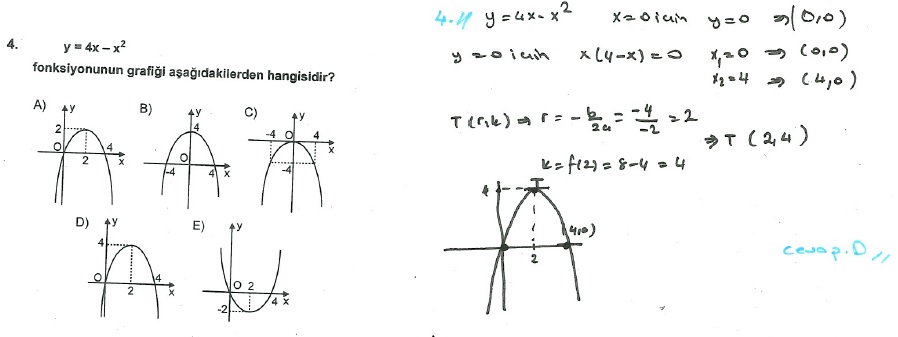 4.
y = 4x – x²
fonksiyonunun grafiği aşağıdakilerden hangisidir?
A) y 2 O 2 4 x
B) y 4 O -4 4 x
C) y -4 O 4 x -4
D) y 4 O 2 4 x
E) y O 2 4 x -2
4.// y = 4x - x² x=0 için y=0 ⇒ (0,0)
y=0 için x(4-x)=0 x₁=0 ⇒ (0,0)
x₂=4 ⇒ (4,0)
T(r,k) ⇒ r = -b/2a = -4/-2 = 2
⇒ T (2,4)
k=f(2)=8-4=4
T
4
(4,0)
2
cevap.D //